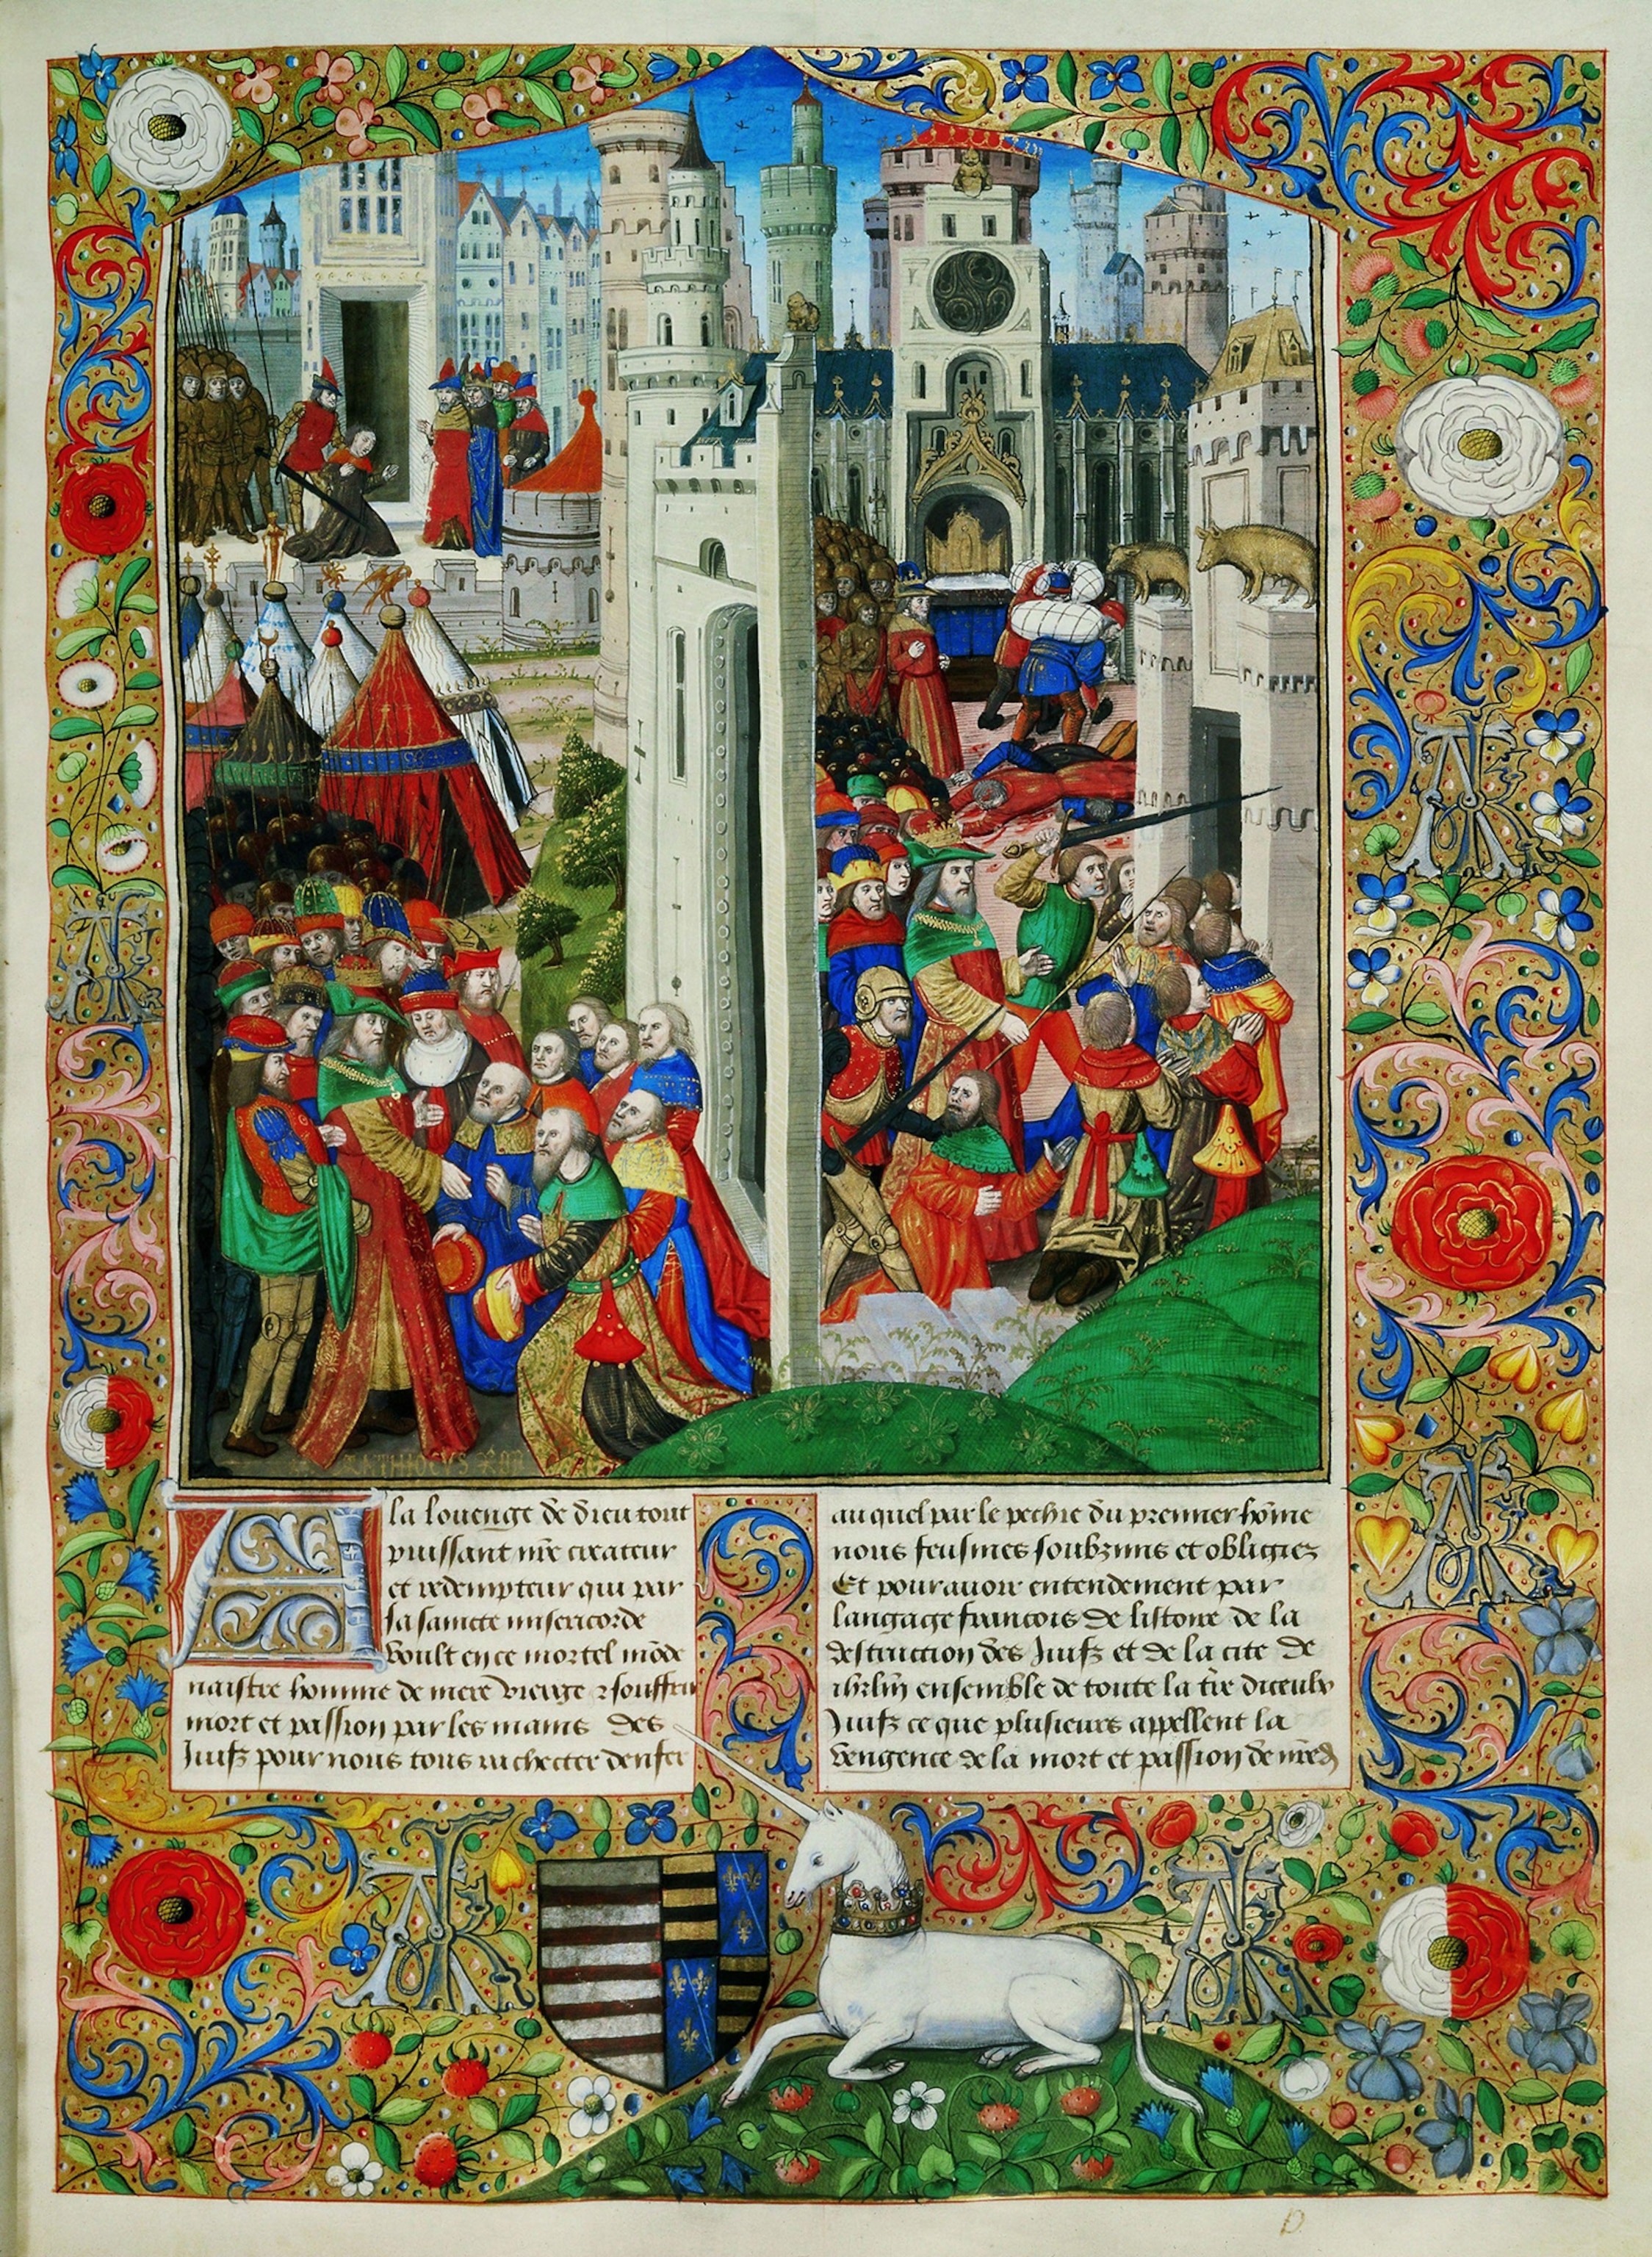 ANTHIOCVS
A la louenge de dieu tout
puissant nr̄e createur
et redempteur qui par
sa saincte misericorde
voult en ce mortel mōde
naistre homme de mere vierge ⁊ souffrir
mort et passion par les mains des
Juifz pour nous tous rachecter denfer
au quel par le pechie du premier hōme
nous feusmes soubzmis et obligiez
Et pour auoir entendement par
langage francois de listoire de la
destruction des Juifz et de la cite de
ihrl̄m ensemble de toute la tr̄e diceulx
Juifz ce que plusieurs appellent la
vengence de la mort et passion de nr̄e